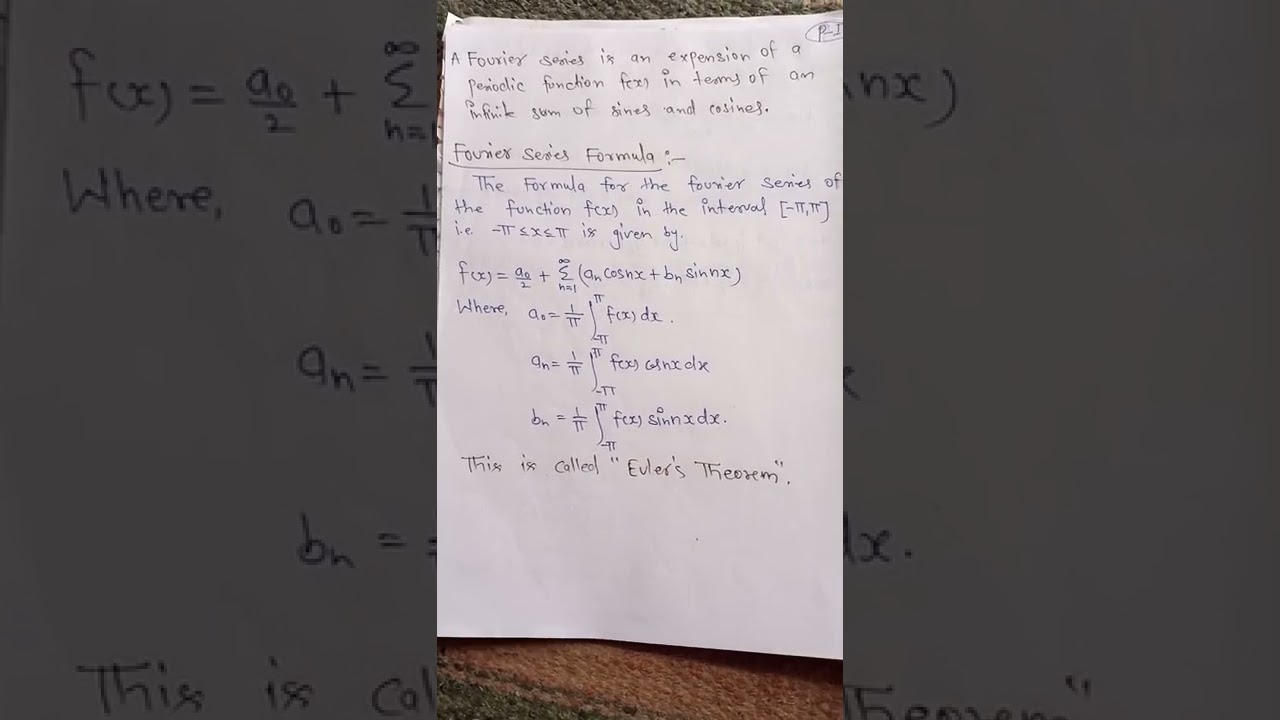 P-I
A Fourier series is an expension of a
periodic function f(x) in terms of an
infinite sum of sines and cosines.
Fourier series Formula :-
The Formula for the fourier series of
the function f(x) in the interval [-π,π]
i.e. -π≤x≤π is given by.
f(x) = a₀/2 + ∞∑n=1 (aₙ cosnx + bₙ sinnx)
Where, a₀ = 1/π ∫_{-π}^{π} f(x) dx.
aₙ = 1/π ∫_{-π}^{π} f(x) cosnx dx
bₙ = 1/π ∫_{-π}^{π} f(x) sinnx dx.
This is called "Euler's Theorem".